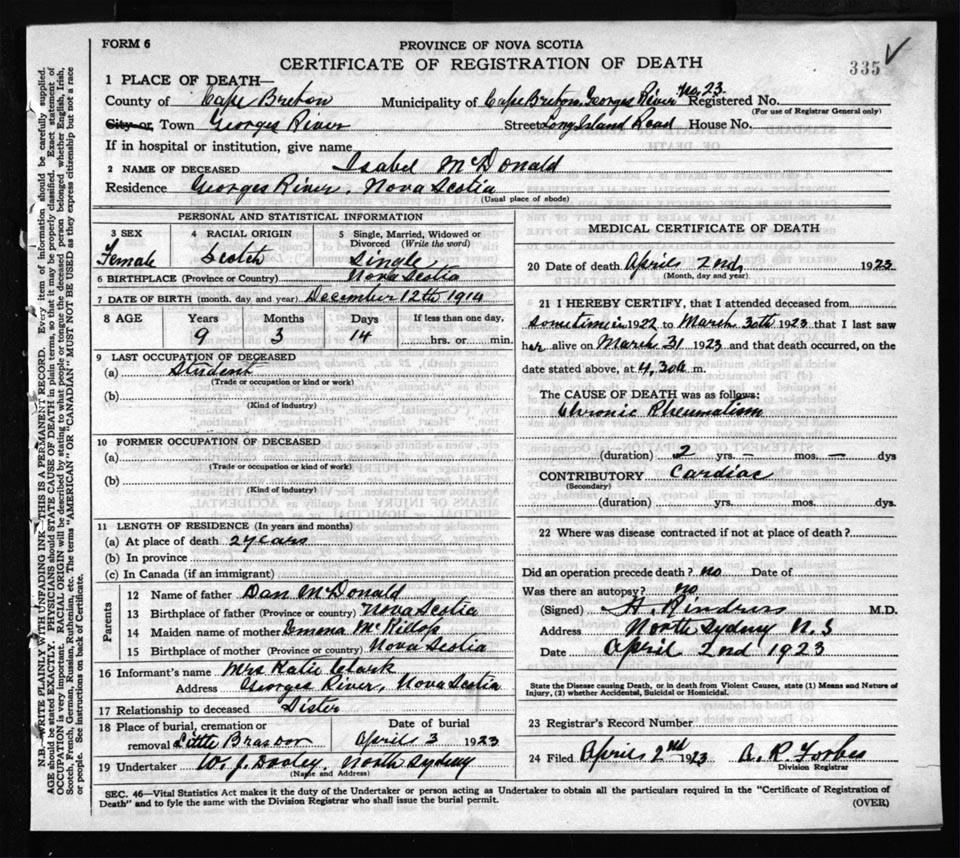 FORM 6
PROVINCE OF NOVA SCOTIA
CERTIFICATE OF REGISTRATION OF DEATH
335
1 PLACE OF DEATH—
County of Cape Breton Municipality of Cape Breton, Georges River No. 23 Registered No.
(For use of Registrar General only)
City or Town Georges River Street Long Island Road House No.
If in hospital or institution, give name
2 NAME OF DECEASED Isabel McDonald
Residence Georges River, Nova Scotia
(Usual place of abode)
PERSONAL AND STATISTICAL INFORMATION
3 SEX 4 RACIAL ORIGIN 5 Single, Married, Widowed or Divorced (Write the word)
Female Scotch Single
6 BIRTHPLACE (Province or Country) Nova Scotia
7 DATE OF BIRTH (month, day and year) December 12th 1914
8 AGE Years Months Days If less than one day,
9 3 14 hrs. or min.
9 LAST OCCUPATION OF DECEASED
(a) Student
(Trade or occupation or kind or work)
(b)
(Kind of industry)
10 FORMER OCCUPATION OF DECEASED
(a)
(Trade or occupation or kind of work)
(b)
(Kind of industry)
11 LENGTH OF RESIDENCE (In years and months)
(a) At place of death 2 years
(b) In province
(c) In Canada (if an immigrant)
Parents
12 Name of father Dan McDonald
13 Birthplace of father (Province or country) Nova Scotia
14 Maiden name of mother McKillop
15 Birthplace of mother (Province or country) Nova Scotia
16 Informant's name Mrs Katie Clark
Address Georges River, Nova Scotia
17 Relationship to deceased Sister
18 Place of burial, cremation or removal Little Brasdor Date of burial April 3 1923
19 Undertaker W. J. Dooley, North Sydney
(Name and Address)
MEDICAL CERTIFICATE OF DEATH
20 Date of death April 2nd, 1923
(Month, day and year)
21 I HEREBY CERTIFY, that I attended deceased from
sometime in 1922 to March 30th 1923 that I last saw
her alive on March 31 1923 and that death occurred, on the
date stated above, at 4.30 a m.
The CAUSE OF DEATH was as follows:
Chronic Rheumatism
(duration) 2 yrs. — mos. — dys
CONTRIBUTORY Cardiac
(Secondary)
(duration) yrs. mos. dys.
22 Where was disease contracted if not at place of death?
Did an operation precede death? no Date of
Was there an autopsy? no
(Signed) H. M.D.
Address North Sydney N.S
Date April 2nd 1923
State the Disease causing Death, or in death from Violent Causes, state (1) Means and Nature of
Injury, (2) whether Accidental, Suicidal or Homicidal.
23 Registrar's Record Number
24 Filed April 2nd 1923 A. R. Forbes
Division Registrar
SEC. 46—Vital Statistics Act makes it the duty of the Undertaker or person acting as Undertaker to obtain all the particulars required in the "Certificate of Registration of
Death" and to fyle the same with the Division Registrar who shall issue the burial permit.
(OVER)
N.B.—WRITE PLAINLY WITH UNFADING INK—THIS IS A PERMANENT RECORD. Every item of information should be carefully supplied.
AGE should be stated EXACTLY. PHYSICIANS should STATE CAUSE OF DEATH in plain terms, so that it may be properly classified. Exact statement of
OCCUPATION is very important. RACIAL ORIGIN will be described by stating to what people or tongue the deceased person belonged whether English, Irish,
Scotch, French, German, Russian, Ruthenian, etc. The terms "AMERICAN" OR "CANADIAN" MUST NOT BE USED as they express citizenship but not a race
or people. See instructions on back of Certificate.